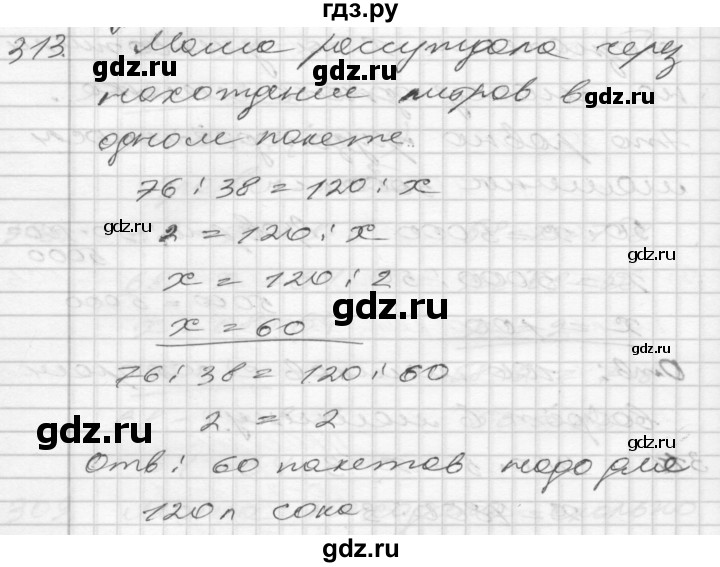 гдз.ру
313. Маша рассуждала через
gdz.ru
нахождение литров в
gdz.ru
одном пакете.
76 : 38 = 120 : x
gdz.ru
2 = 120 : x
gdz.ru
x = 120 : 2
gdz.ru
x = 60
76 : 38 = 120 : 60
gdz.ru
2 = 2
gdz.ru
Отв: 60 пакетов надо для
120 л сока
gdz.ru
gdz.ru